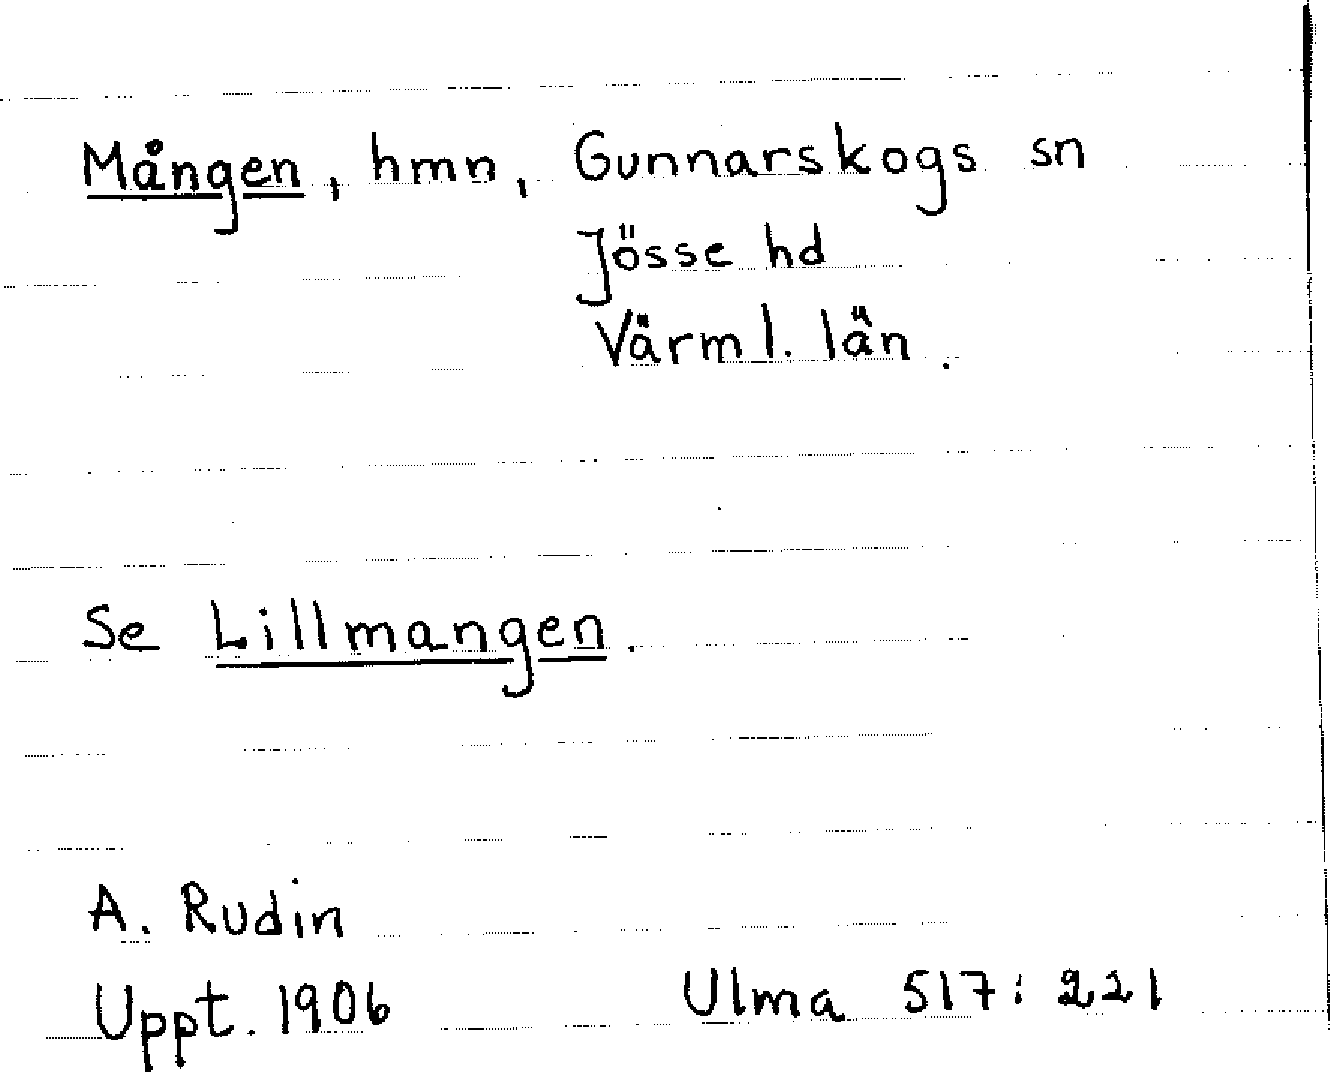 Mången, hmn, Gunnarskogs sn
Jösse hd
Värml. län.
Se Lillmangen.
A. Rudin
Uppt. 1906 Ulma 517:221